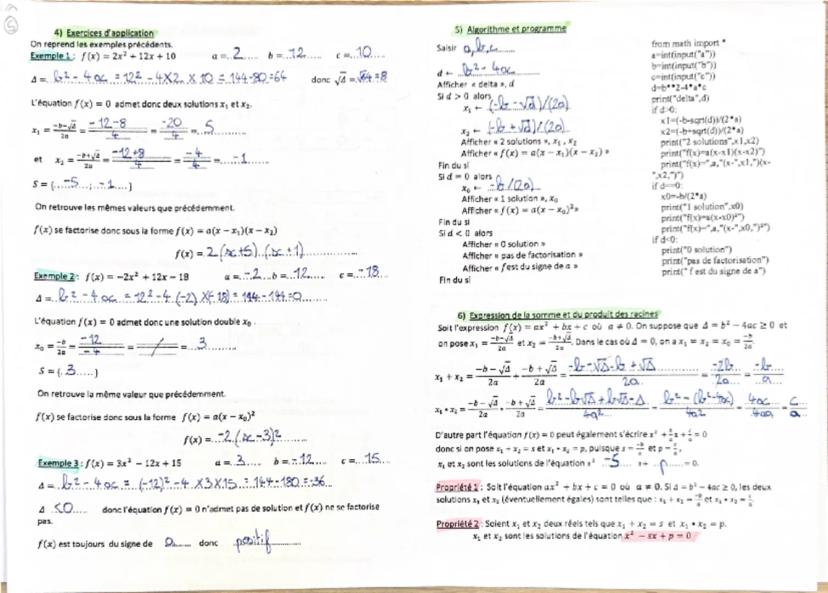 4) Exercices d'application
On reprend les exemples précédents.
Exemple 1 : f(x) = 2x² + 12x + 10 a = 2 b = 12 c = 10
Δ = b² - 4ac = 12² - 4×2×10 = 144-80 = 64 donc √Δ = √64 = 8
L'équation f(x) = 0 admet donc deux solutions x₁ et x₂.
x₁ = (-b-√Δ)/2a = (-12-8)/4 = -20/4 = -5
et x₂ = (-b+√Δ)/2a = (-12+8)/4 = -4/4 = -1
S = {-5 ; -1}
On retrouve les mêmes valeurs que précédemment.
f(x) se factorise donc sous la forme f(x) = a(x - x₁)(x - x₂)
f(x) = 2(x+5)(x+1)
Exemple 2 : f(x) = -2x² + 12x - 18 a = -2 b = 12 c = -18
Δ = b² - 4ac = 12² - 4×(-2)×(-18) = 144 - 144 = 0
L'équation f(x) = 0 admet donc une solution double x₀.
x₀ = -b/2a = -12/-4 = / = 3
S = {3}
On retrouve la même valeur que précédemment.
f(x) se factorise donc sous la forme f(x) = a(x - x₀)²
f(x) = -2(x-3)²
Exemple 3 : f(x) = 3x² - 12x + 15 a = 3 b = -12 c = 15
Δ = b² - 4ac = (-12)² - 4×3×15 = 144 - 180 = -36
Δ <0 donc l'équation f(x) = 0 n'admet pas de solution et f(x) ne se factorise
pas.
f(x) est toujours du signe de a donc positif
5) Algorithme et programme
Saisir a,b,c
d ← b² - 4ac
Afficher « delta », d
Si d > 0 alors
x₁ ← (-b - √d)/(2a)
x₂ ← (-b + √d)/(2a)
Afficher « 2 solutions », x₁, x₂
Afficher « f(x) = a(x - x₁)(x - x₂) »
Fin du si
Si d = 0 alors
x₀ ← -b/(2a)
Afficher « 1 solution », x₀
Afficher « f(x) = a(x - x₀)² »
Fin du si
Si d < 0 alors
Afficher « 0 solution »
Afficher « pas de factorisation »
Afficher « f est du signe de a »
Fin du si
from math import *
a=int(input("a"))
b=int(input("b"))
c=int(input("c"))
d=b**2-4*a*c
print("delta",d)
if d>0:
x1=(-b-sqrt(d))/(2*a)
x2=(-b+sqrt(d))/(2*a)
print("2 solutions",x1,x2)
print("f(x)=a(x-x1)(x-x2)")
print("f(x)=",a,"(x-",x1,")(x-
",x2,")")
if d==0:
x0=-b/(2*a)
print("1 solution",x0)
print("f(x)=a(x-x0)²")
print("f(x)=",a,"(x-",x0,")²")
if d<0:
print("0 solution")
print("pas de factorisation")
print("f est du signe de a")
6) Expression de la somme et du produit des racines
Soit l'expression f(x) = ax² + bx + c où a ≠ 0. On suppose que Δ = b² - 4ac ≥ 0 et
on pose x₁ = (-b-√Δ)/2a et x₂ = (-b+√Δ)/2a. Dans le cas où Δ = 0, on a x₁ = x₂ = x₀ = -b/2a
x₁ + x₂ = (-b-√Δ)/2a + (-b+√Δ)/2a = (-b-√Δ-b+√Δ)/2a = -2b/2a = -b/a
x₁ × x₂ = (-b-√Δ)/2a × (-b+√Δ)/2a = (b²-b√Δ+b√Δ-Δ)/4a² = (b²-(b²-4ac))/4a² = 4ac/4aa = c/a
D'autre part l'équation f(x) = 0 peut également s'écrire x² + b/a x + c/a = 0
donc si on pose x₁ + x₂ = s et x₁ × x₂ = p, puisque s = -b/a et p = c/a,
x₁ et x₂ sont les solutions de l'équation x² -S x + p = 0.
Propriété 1 : Soit l'équation ax² + bx + c = 0 où a ≠ 0. Si Δ = b² - 4ac ≥ 0, les deux
solutions x₁ et x₂ (éventuellement égales) sont telles que : x₁ + x₂ = -b/a et x₁ × x₂ = c/a
Propriété 2 : Soient x₁ et x₂ deux réels tels que x₁ + x₂ = s et x₁ × x₂ = p.
x₁ et x₂ sont les solutions de l'équation x² - sx + p = 0